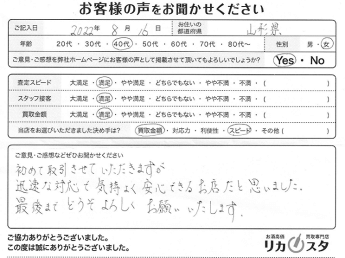 お客様の声をお聞かせください
ご記入日 2022年 8月 16日 お住いの都道府県 山形県
年齢 20代・30代・40代・50代・60代・70代・80代～ 性別 男・女
ご意見・ご感想を弊社ホームページにお客様の声として掲載させて頂いてもよろしいでしょうか? Yes・No
査定スピード 大満足・満足・やや満足・どちらでもない・やや不満・不満・( )
スタッフ接客 大満足・満足・やや満足・どちらでもない・やや不満・不満・( )
買取金額 大満足・満足・やや満足・どちらでもない・やや不満・不満・( )
当店をお選びいただきました決め手は? 買取金額・対応力・利便性・スピード・その他( )
ご意見・ご感想などぜひお聞かせください
初めて取引させていただきますが
迅速な対応で気持よく安心できるお店だと思いました。
最後までどうぞよろしくお願いいたします。
ご協力ありがとうございました。
この度は誠にありがとうございました。
お酒高価買取専門店
リカスタ